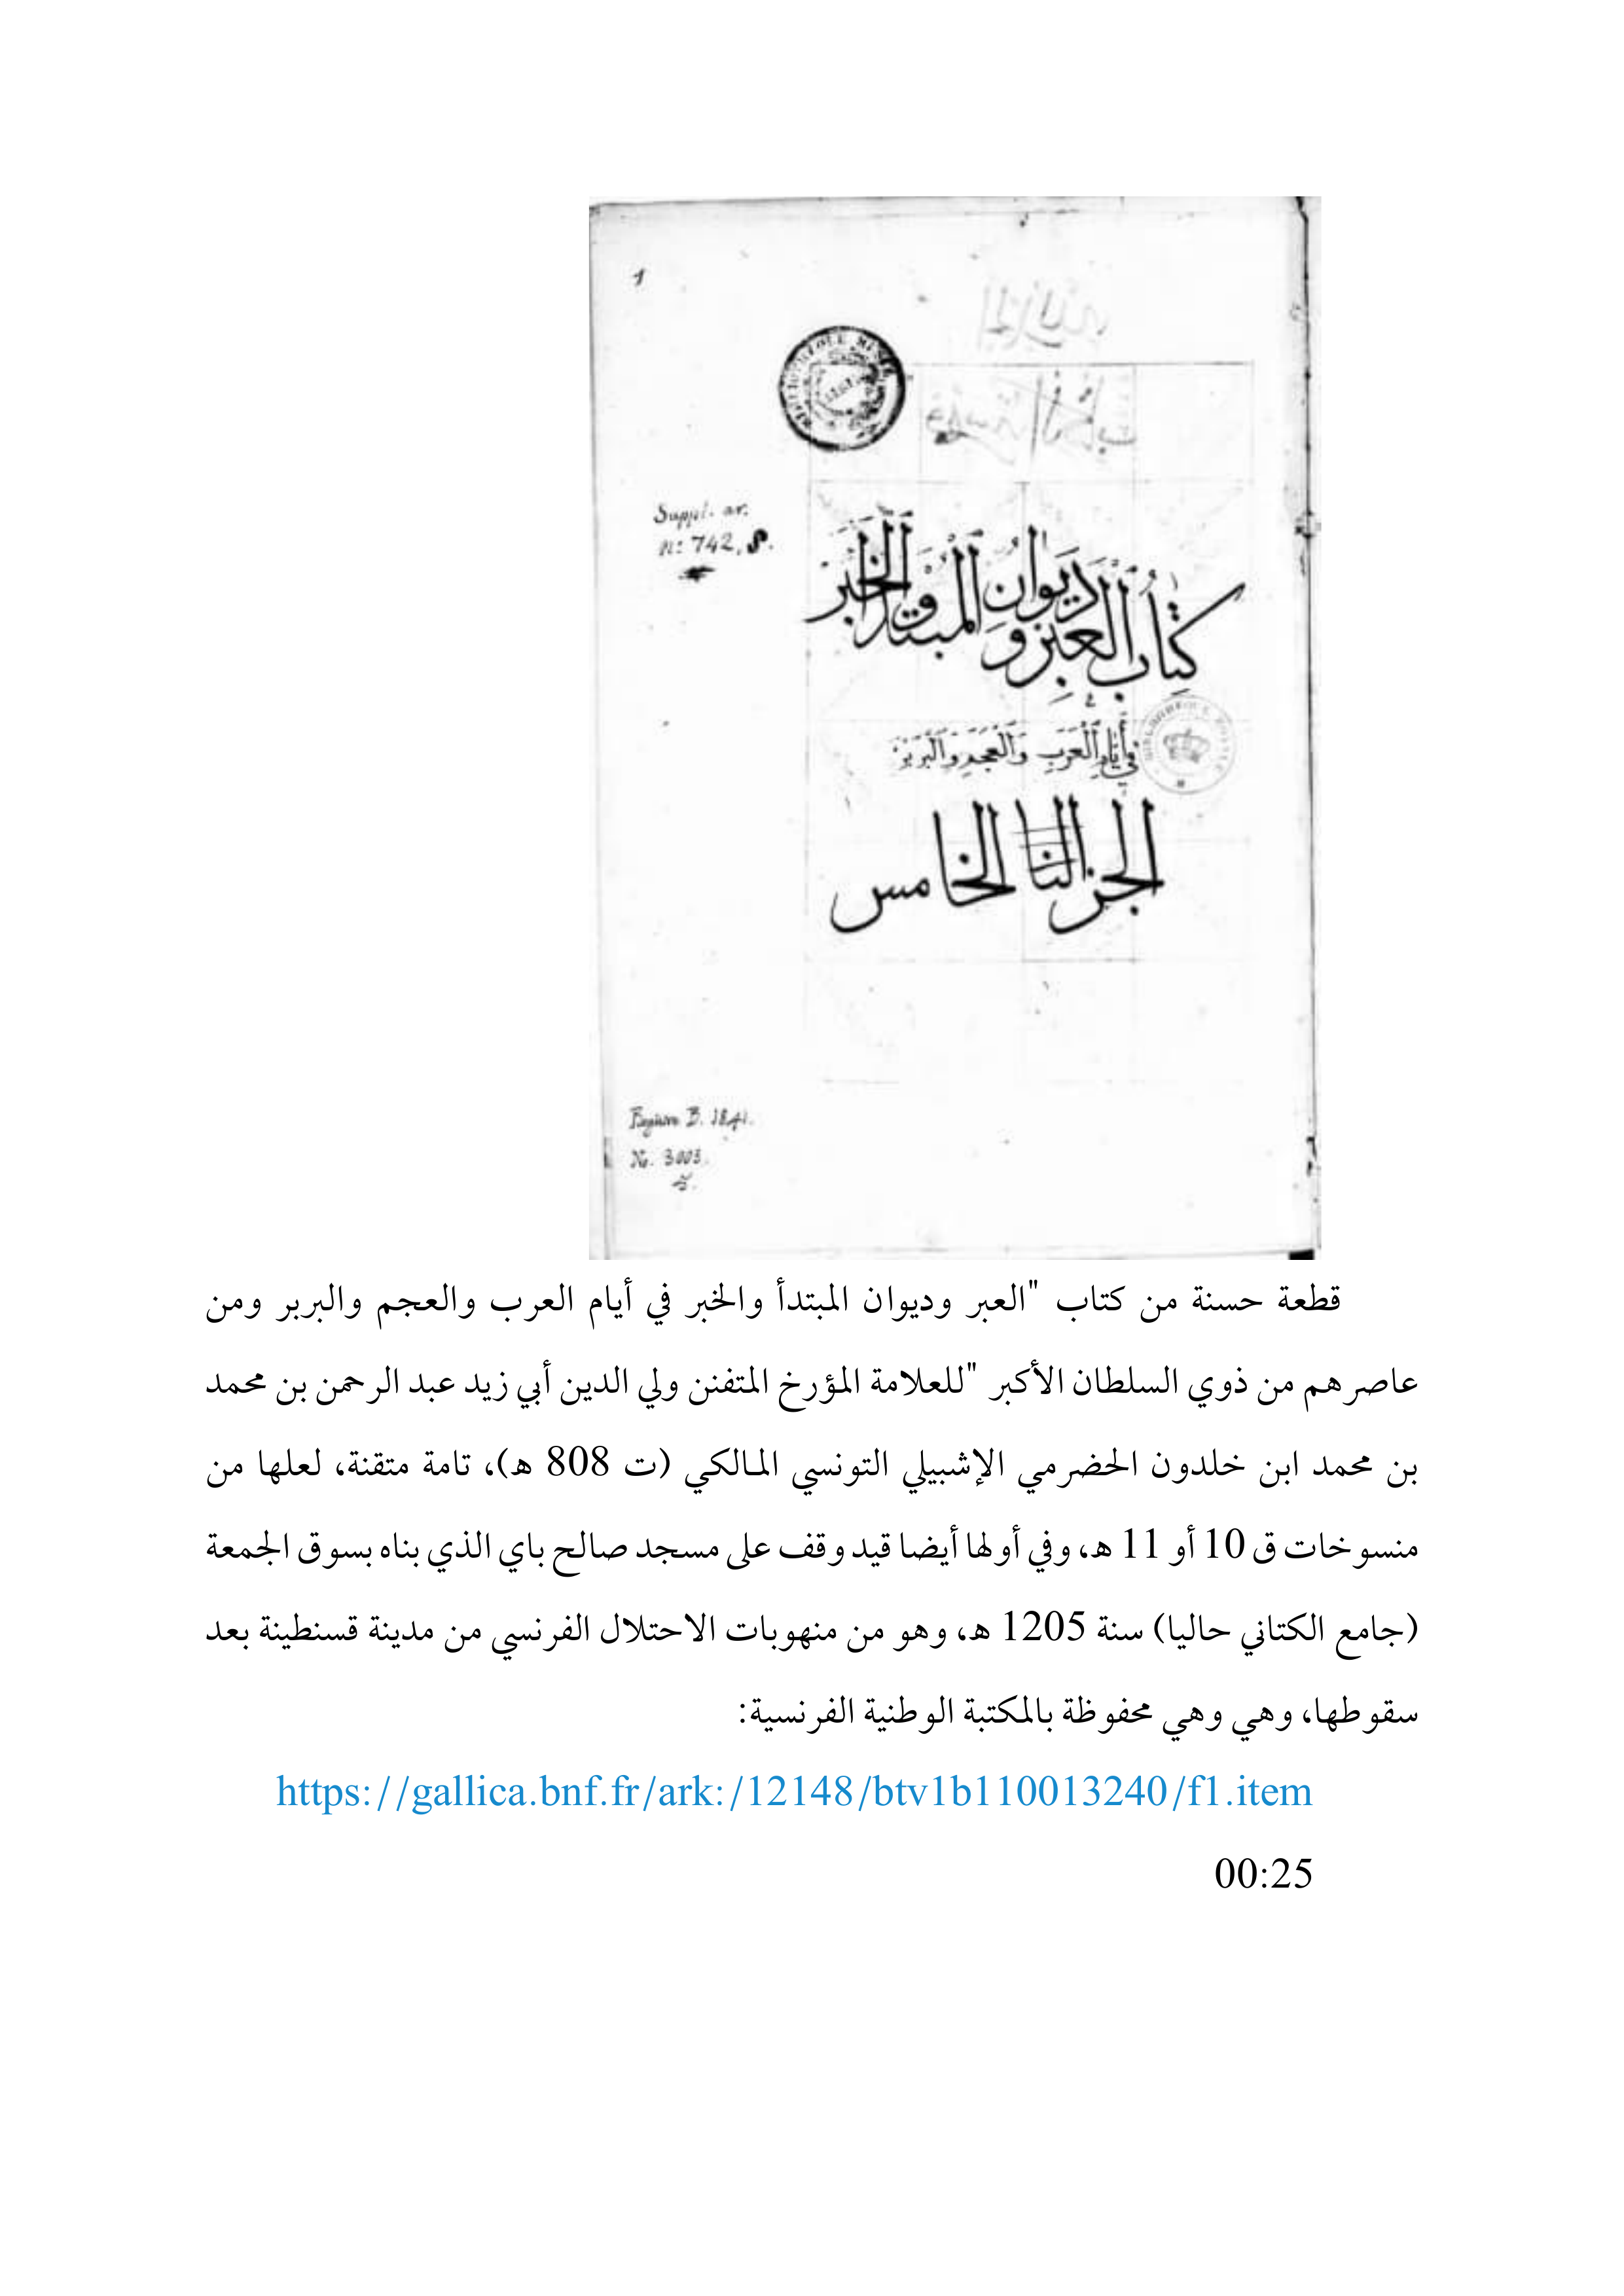 1
Suppl. ar.
n: 742,
كِتَابُ العِبَرِ وَدِيوَانُ المُبْتَدَإِ وَالْخَبَر
في أيام العَرَبِ وَالْعَجَمِ وَالْبَرْبَر
الجز الثا الخامس
B. 1841.
No. 3003.
5.
قطعة حسنة من كتاب "العبر وديوان المبتدأ والخبر في أيام العرب والعجم والبربر ومن
عاصرهم من ذوي السلطان الأكبر "للعلامة المؤرخ المتفنن ولي الدين أبي زيد عبد الرحمن بن محمد
بن محمد ابن خلدون الحضرمي الإشبيلي التونسي المالكي (ت 808 ه)، تامة متقنة، لعلها من
منسوخات ق 10 أو 11 ه، وفي أولها أيضا قيد وقف على مسجد صالح باي الذي بناه بسوق الجمعة
(جامع الكتاني حاليا) سنة 1205 ه، وهو من منهوبات الاحتلال الفرنسي من مدينة قسنطينة بعد
سقوطها، وهي وهي محفوظة بالمكتبة الوطنية الفرنسية:
https://gallica.bnf.fr/ark:/12148/btv1b110013240/f1.item
00:25